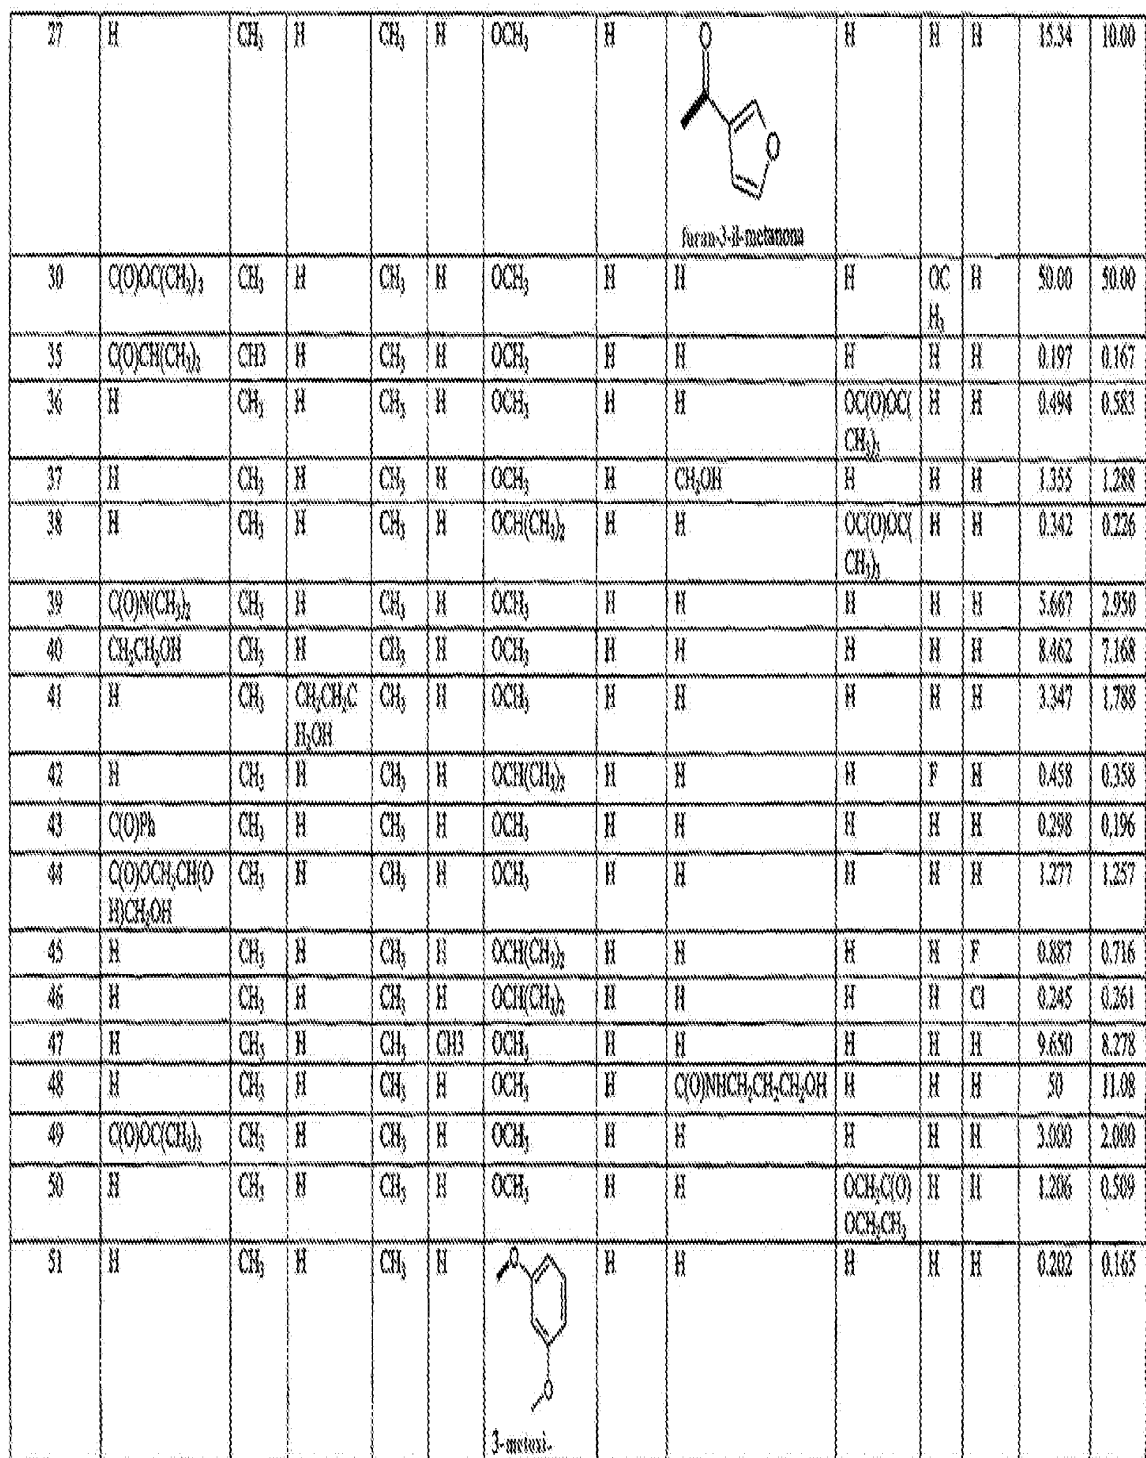 27 H CH₃ H CH₃ H OCH₃ H O H H H 15.34 10.00
O
furan-3-il-metanona
30 C(O)OC(CH₃)₃ CH₃ H CH₃ H OCH₃ H H H OC H 50.00 50.00
H₃
35 C(O)CH(CH₃)₂ CH3 H CH₃ H OCH₃ H H H H H 0.197 0.167
36 H CH₃ H CH₃ H OCH₃ H H OC(O)OC( H H 0.494 0.583
CH₃)₃
37 H CH₃ H CH₃ H OCH₃ H CH₂OH H H H 1.355 1.288
38 H CH₃ H CH₃ H OCH(CH₃)₂ H H OC(O)OC( H H 0.342 0.226
CH₃)₃
39 C(O)N(CH₃)₂ CH₃ H CH₃ H OCH₃ H H H H H 5.667 2.950
40 CH₂CH₂OH CH₃ H CH₃ H OCH₃ H H H H H 8.462 7.168
41 H CH₃ CH₂CH₂C CH₃ H OCH₃ H H H H H 3.347 1.788
H₂OH
42 H CH₃ H CH₃ H OCH(CH₃)₂ H H H F H 0.458 0.358
43 C(O)Ph CH₃ H CH₃ H OCH₃ H H H H H 0.298 0.196
44 C(O)OCH₂CH(O CH₃ H CH₃ H OCH₃ H H H H H 1.277 1.257
H)CH₂OH
45 H CH₃ H CH₃ H OCH(CH₃)₂ H H H H F 0.887 0.716
46 H CH₃ H CH₃ H OCH(CH₃)₂ H H H H Cl 0.245 0.261
47 H CH₃ H CH₃ CH3 OCH₃ H H H H H 9.650 8.278
48 H CH₃ H CH₃ H OCH₃ H C(O)NHCH₂CH₂CH₂OH H H H 50 11.08
49 C(O)OC(CH₃)₃ CH₃ H CH₃ H OCH₃ H H H H H 3.000 2.000
50 H CH₃ H CH₃ H OCH₃ H H OCH₂C(O) H H 1.206 0.509
OCH₂CH₃
51 H CH₃ H CH₃ H O H H H H H 0.202 0.165
O
3-metoxi-